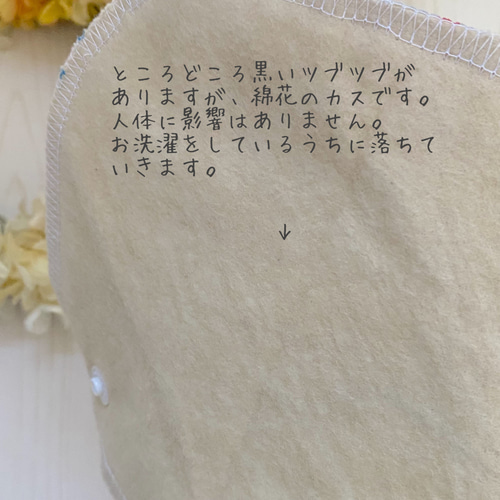 ところどころ黒いツブツブが
ありますが、綿花のカスです。
人体に影響はありません。
お洗濯をしているうちに落ちて
いきます。
↓